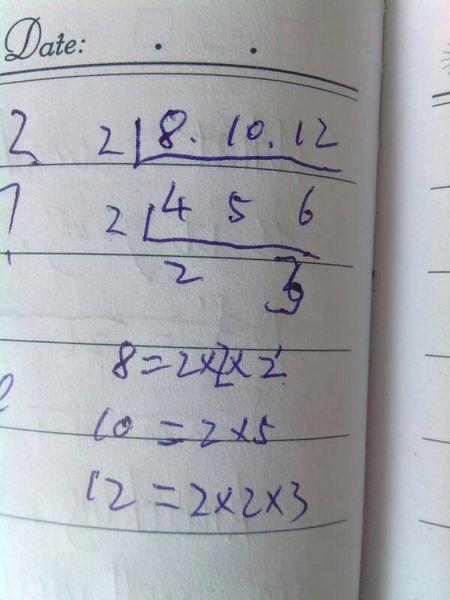 Date:
2 2 8. 10. 12
2 4 5 6
2 3
8=2×2×2
10=2×5
12=2×2×3